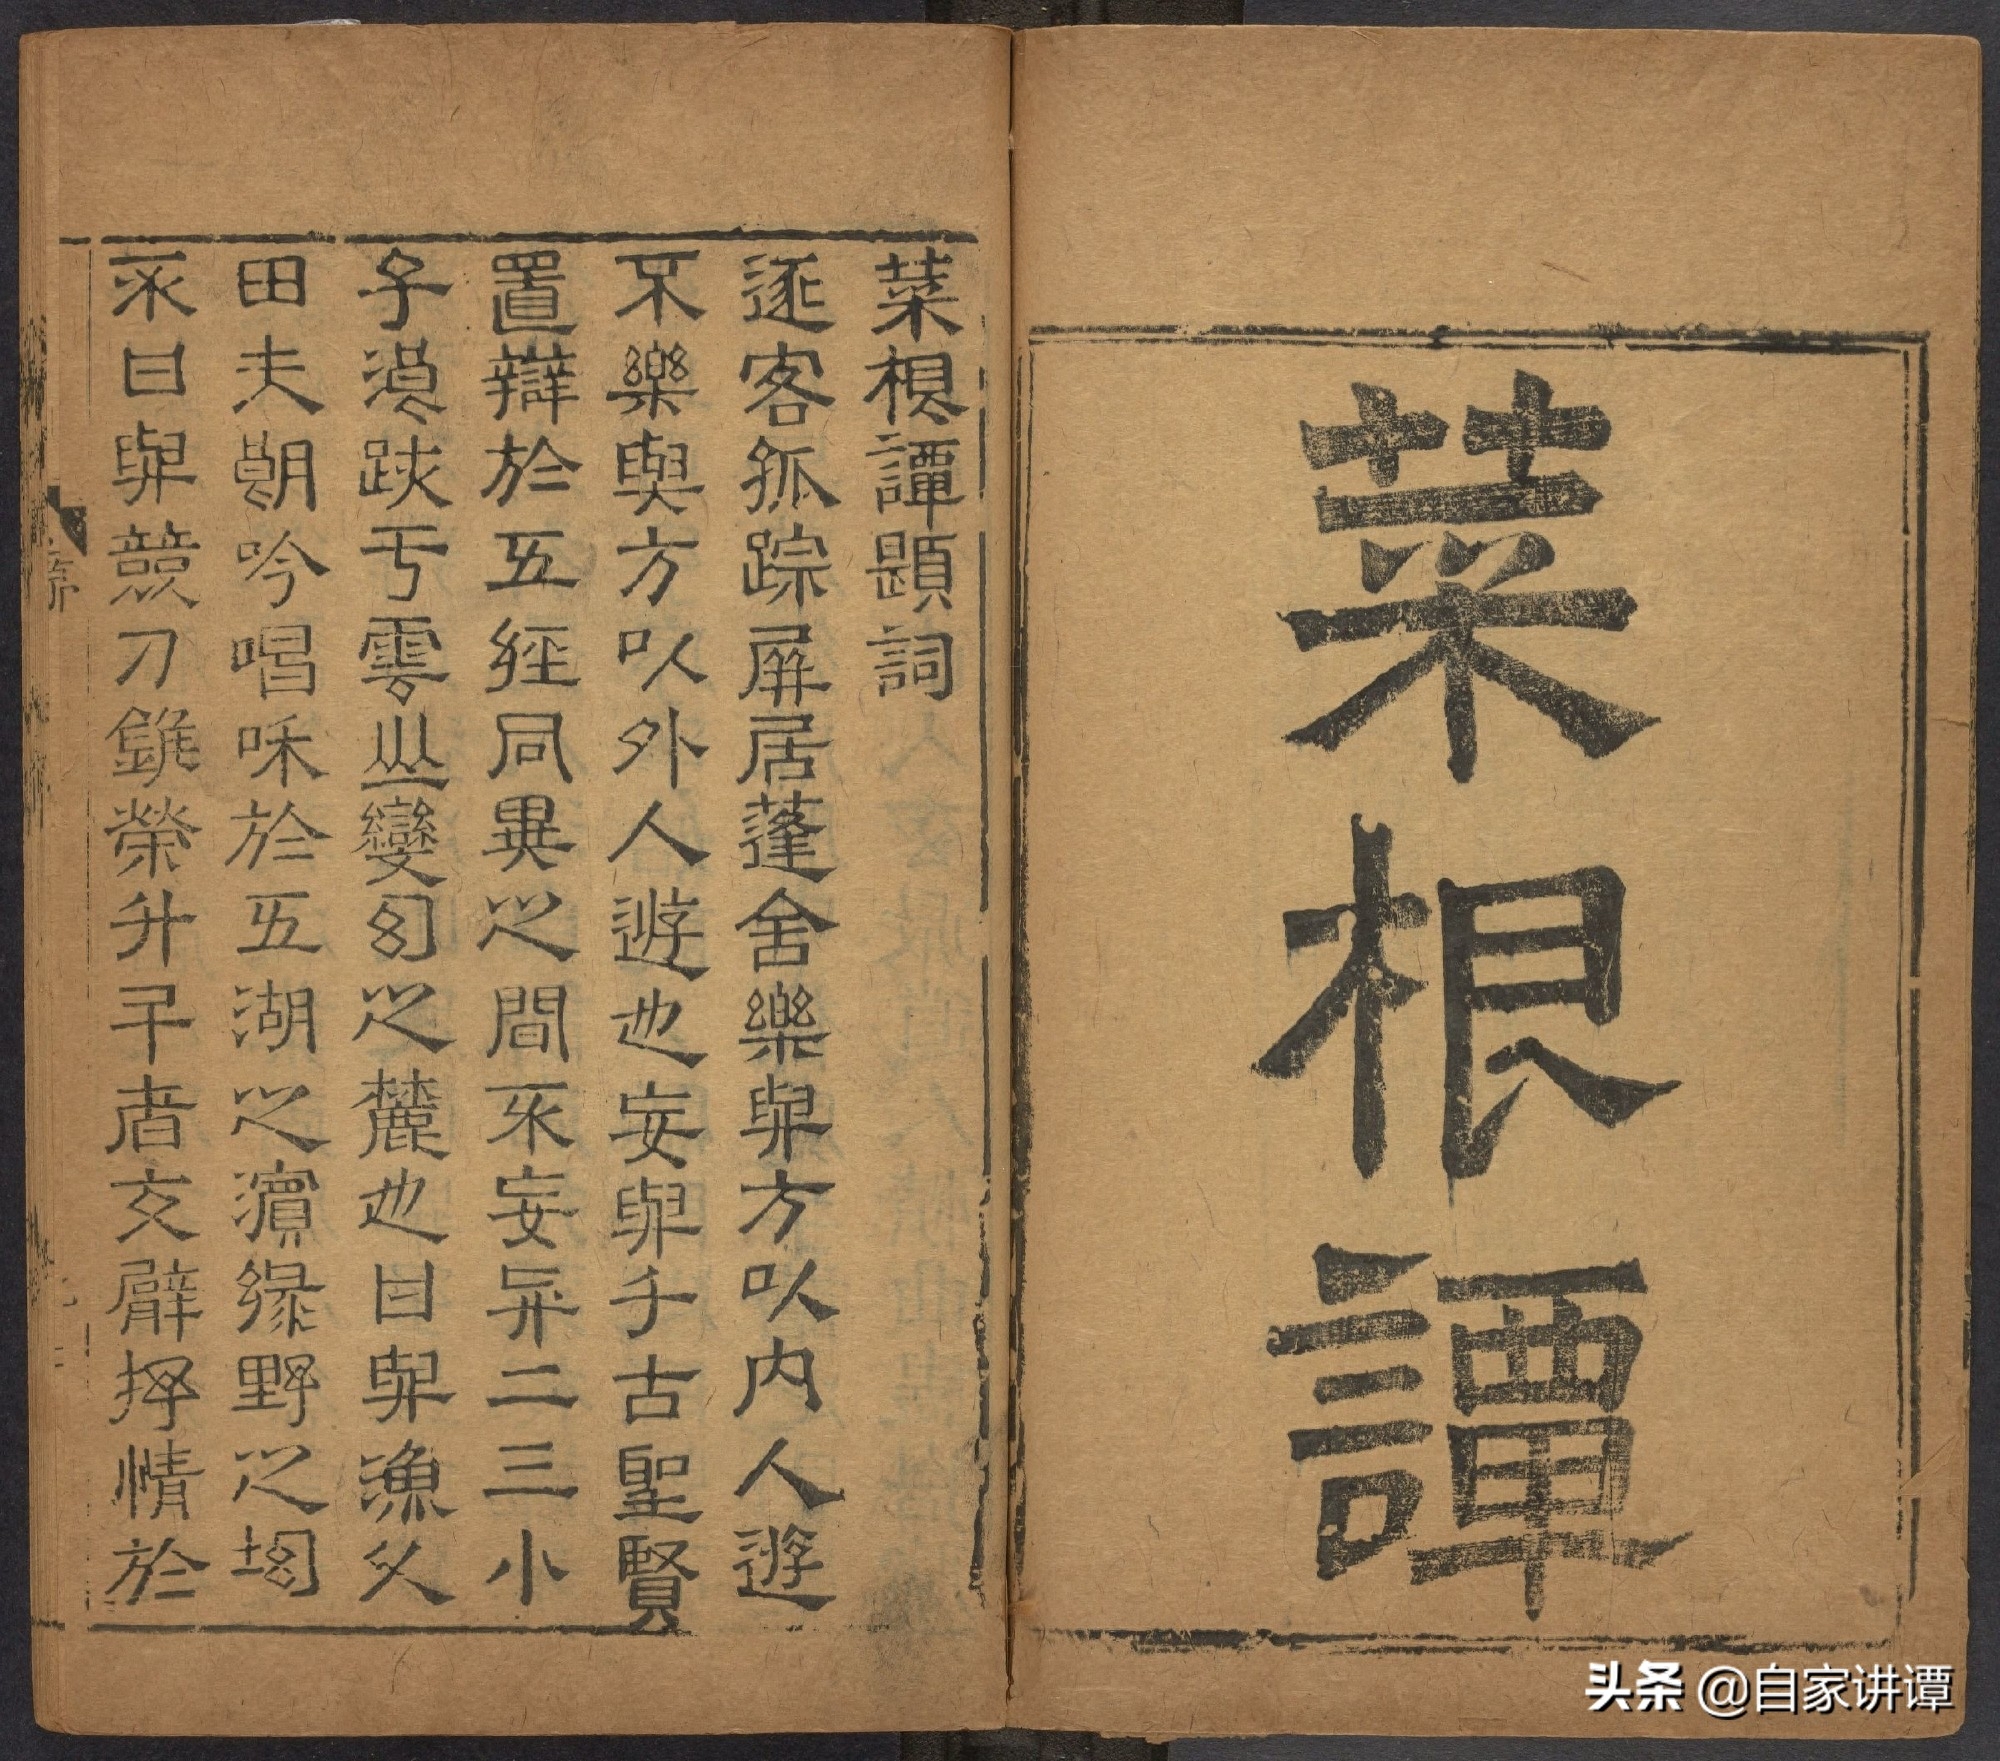 菜根譚
菜根譚題詞
逐客孤踪屏居蓬舍樂與方以内人遊
不樂與方以外人遊也妄與千古聖賢
置辯於五經同異之間不妄與二三小
子浪跡于雲山變幻之麓也日與漁父
田夫朗吟唱咊於五湖之濱綠野之坳
不日與競刀錐榮升斗者交臂抒情於
序
头条 @自家讲谭